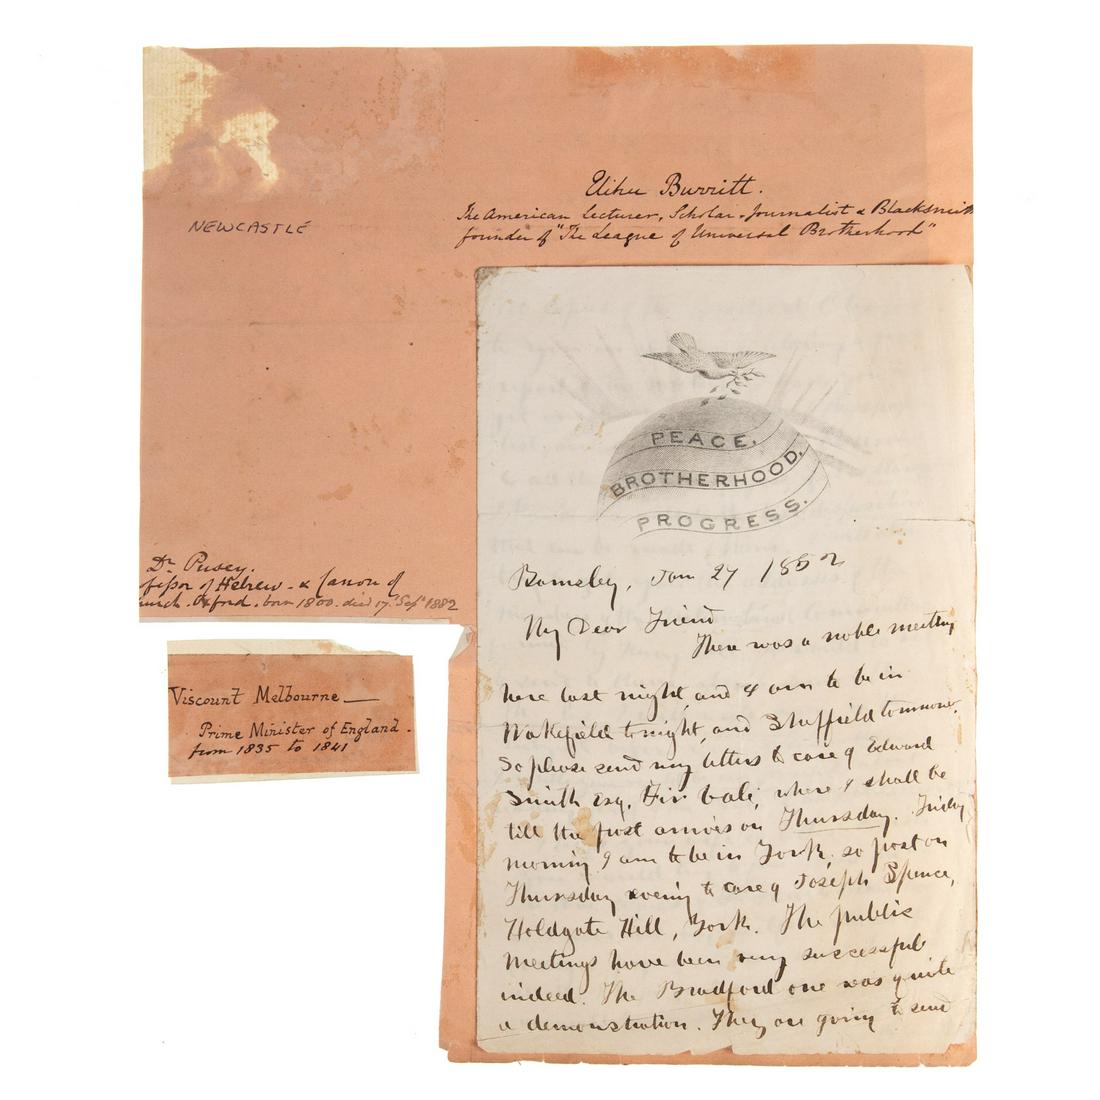 Elihu Burritt.
The American Lecturer, Scholar, Journalist & Blacksmith
founder of "The League of Universal Brotherhood"
NEWCASTLE
PEACE.
BROTHERHOOD.
PROGRESS.
Barnsley, Jan 27 1852
My Dear Friend
There was a noble meeting
here last night, and I am to be in
Wakefield tonight, and Sheffield tomorrow.
So please send my letters to care of Edward
Smith Esq, Fir Vale, where I shall be
till the post arrives on Thursday. Friday
morning I am to be in York, so post on
Thursday evening to care of Joseph Spence,
Holdgate Hill, York. The public
meetings have been very successful
indeed. The Bradford one was quite
a demonstration. They are going to send
Dr Pusey.
ofessor of Hebrew & Canon of
hurch. Oxford. born 1800. died 17 Sept 1882
Viscount Melbourne —
Prime Minister of England.
from 1835 to 1841